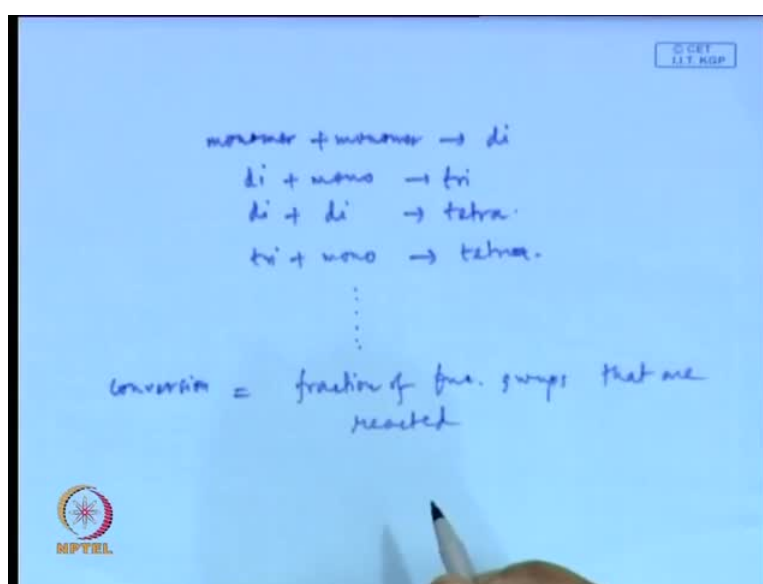 © CET
I.I.T. KGP
monomer + monomer → di
di + mono → tri
di + di → tetra.
tri + mono → tetra.
conversion = fraction of fun. groups that are
reacted
NPTEL